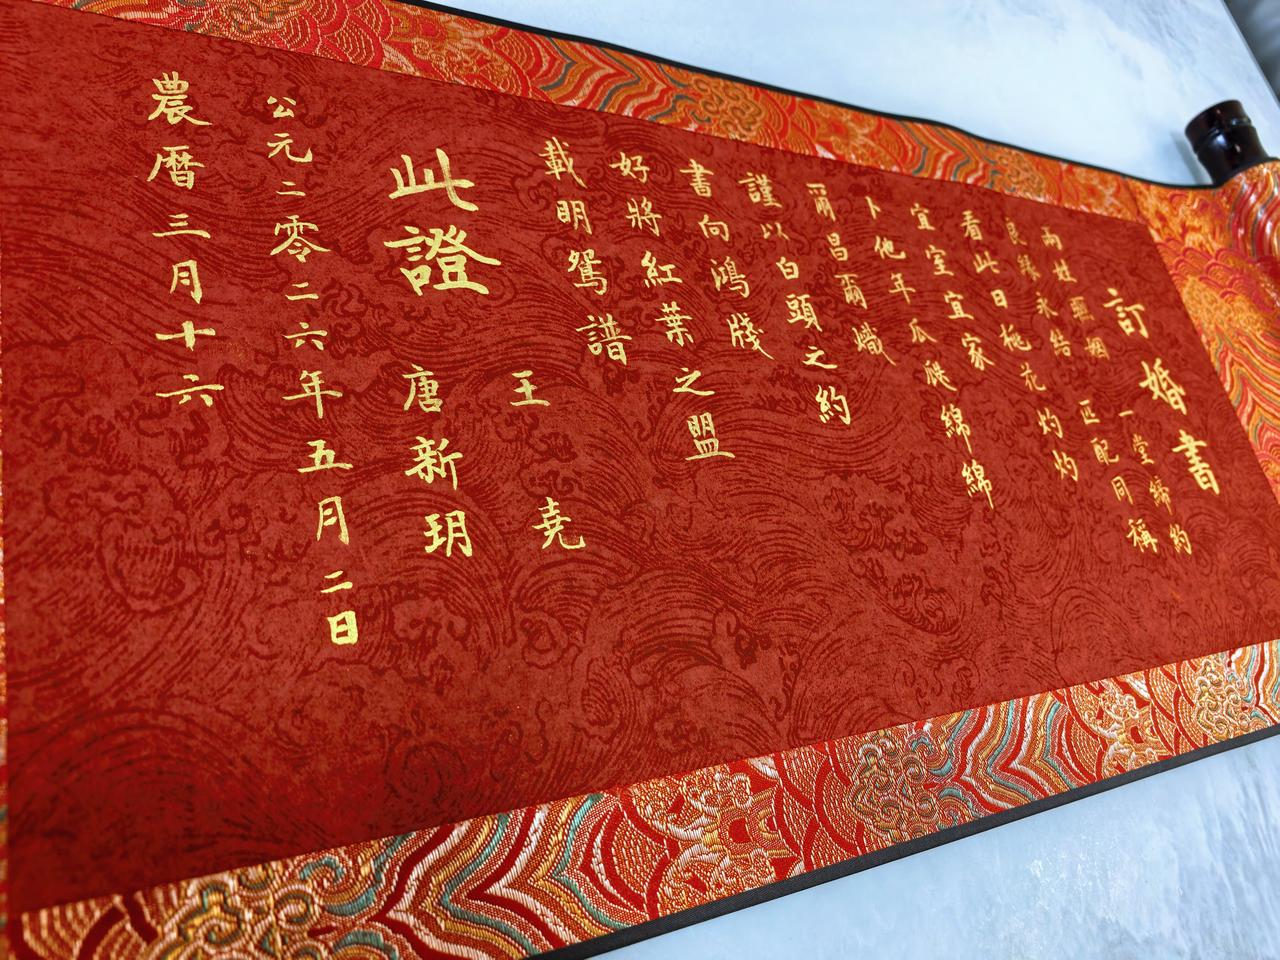 訂婚書
兩姓聯姻 一堂締約
良緣永結 匹配同稱
看此日桃花灼灼
宜室宜家
卜他年瓜瓞綿綿
爾昌爾熾
謹以白頭之約
書向鴻牋
好將紅葉之盟
載明鴛譜
王堯
唐新玥
此證
公元二零二六年五月二日
農曆三月十六